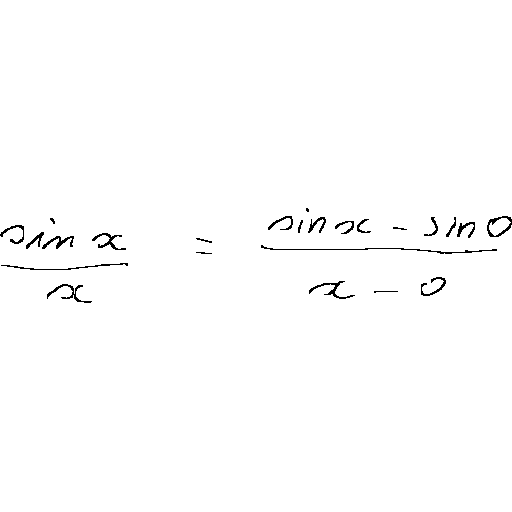 \frac{\sin x}{x} = \frac{\sin x - \sin 0}{x - 0}